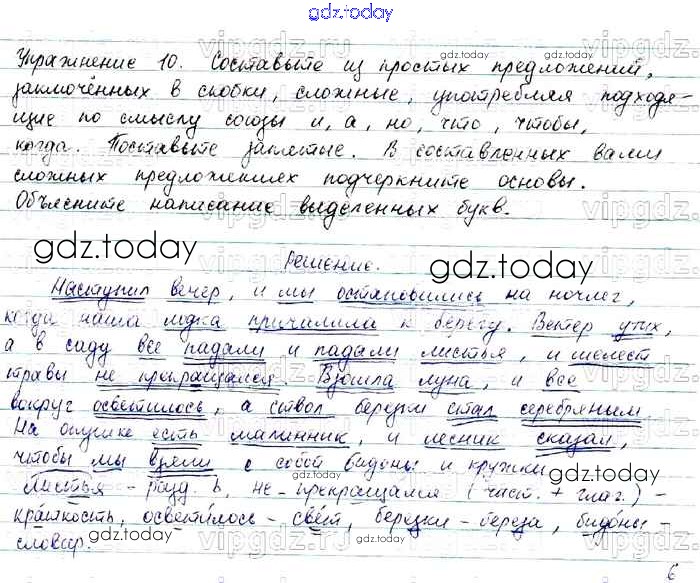 gdz.today
Упражнение 10. Составьте из простых предложений,
заключённых в скобки, сложные, употребляя подходя-
щие по смыслу союзы и, а, но, что, чтобы,
когда. Поставьте запятые. В составленных вами
сложных предложениях подчеркните основы.
Объясните написание выделенных букв.
gdz.today
Решение.
gdz.today
Наступил вечер, и мы остановились на ночлег,
когда наша лодка причалила к берегу. Ветер утих,
а в саду все падали и падали листья, и шелест
травы не прекращался. Взошла луна, и все
вокруг осветилось, а ствол березки стал серебряным
На опушке есть малинник, и лесник сказал,
чтобы мы взяли с собой бидоны и кружки
Листья - разд. ь, не прекращался (част. + глаг.) -
кра́ткость, осветилось - све́т, березки - береза, бидо́ны -
словар.
6